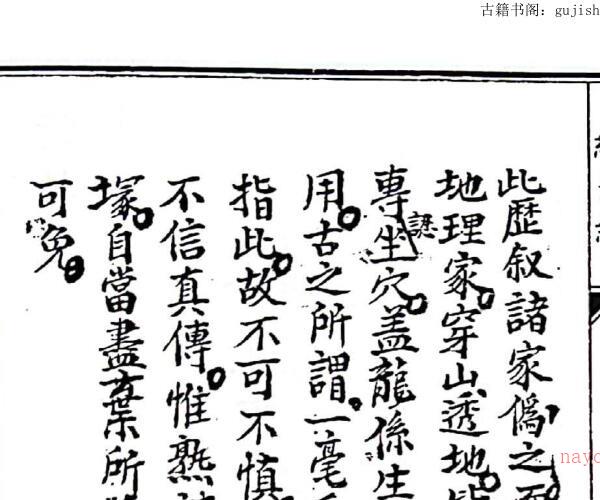 古籍书阁：gujish
此歷叙諸家僞之
地理家穿山透地
專坐穴盖龍係生
謎
用古之所謂一毫
指此故不可不慎
不信真傳惟熟
塚自當盡棄所
可免
nayo